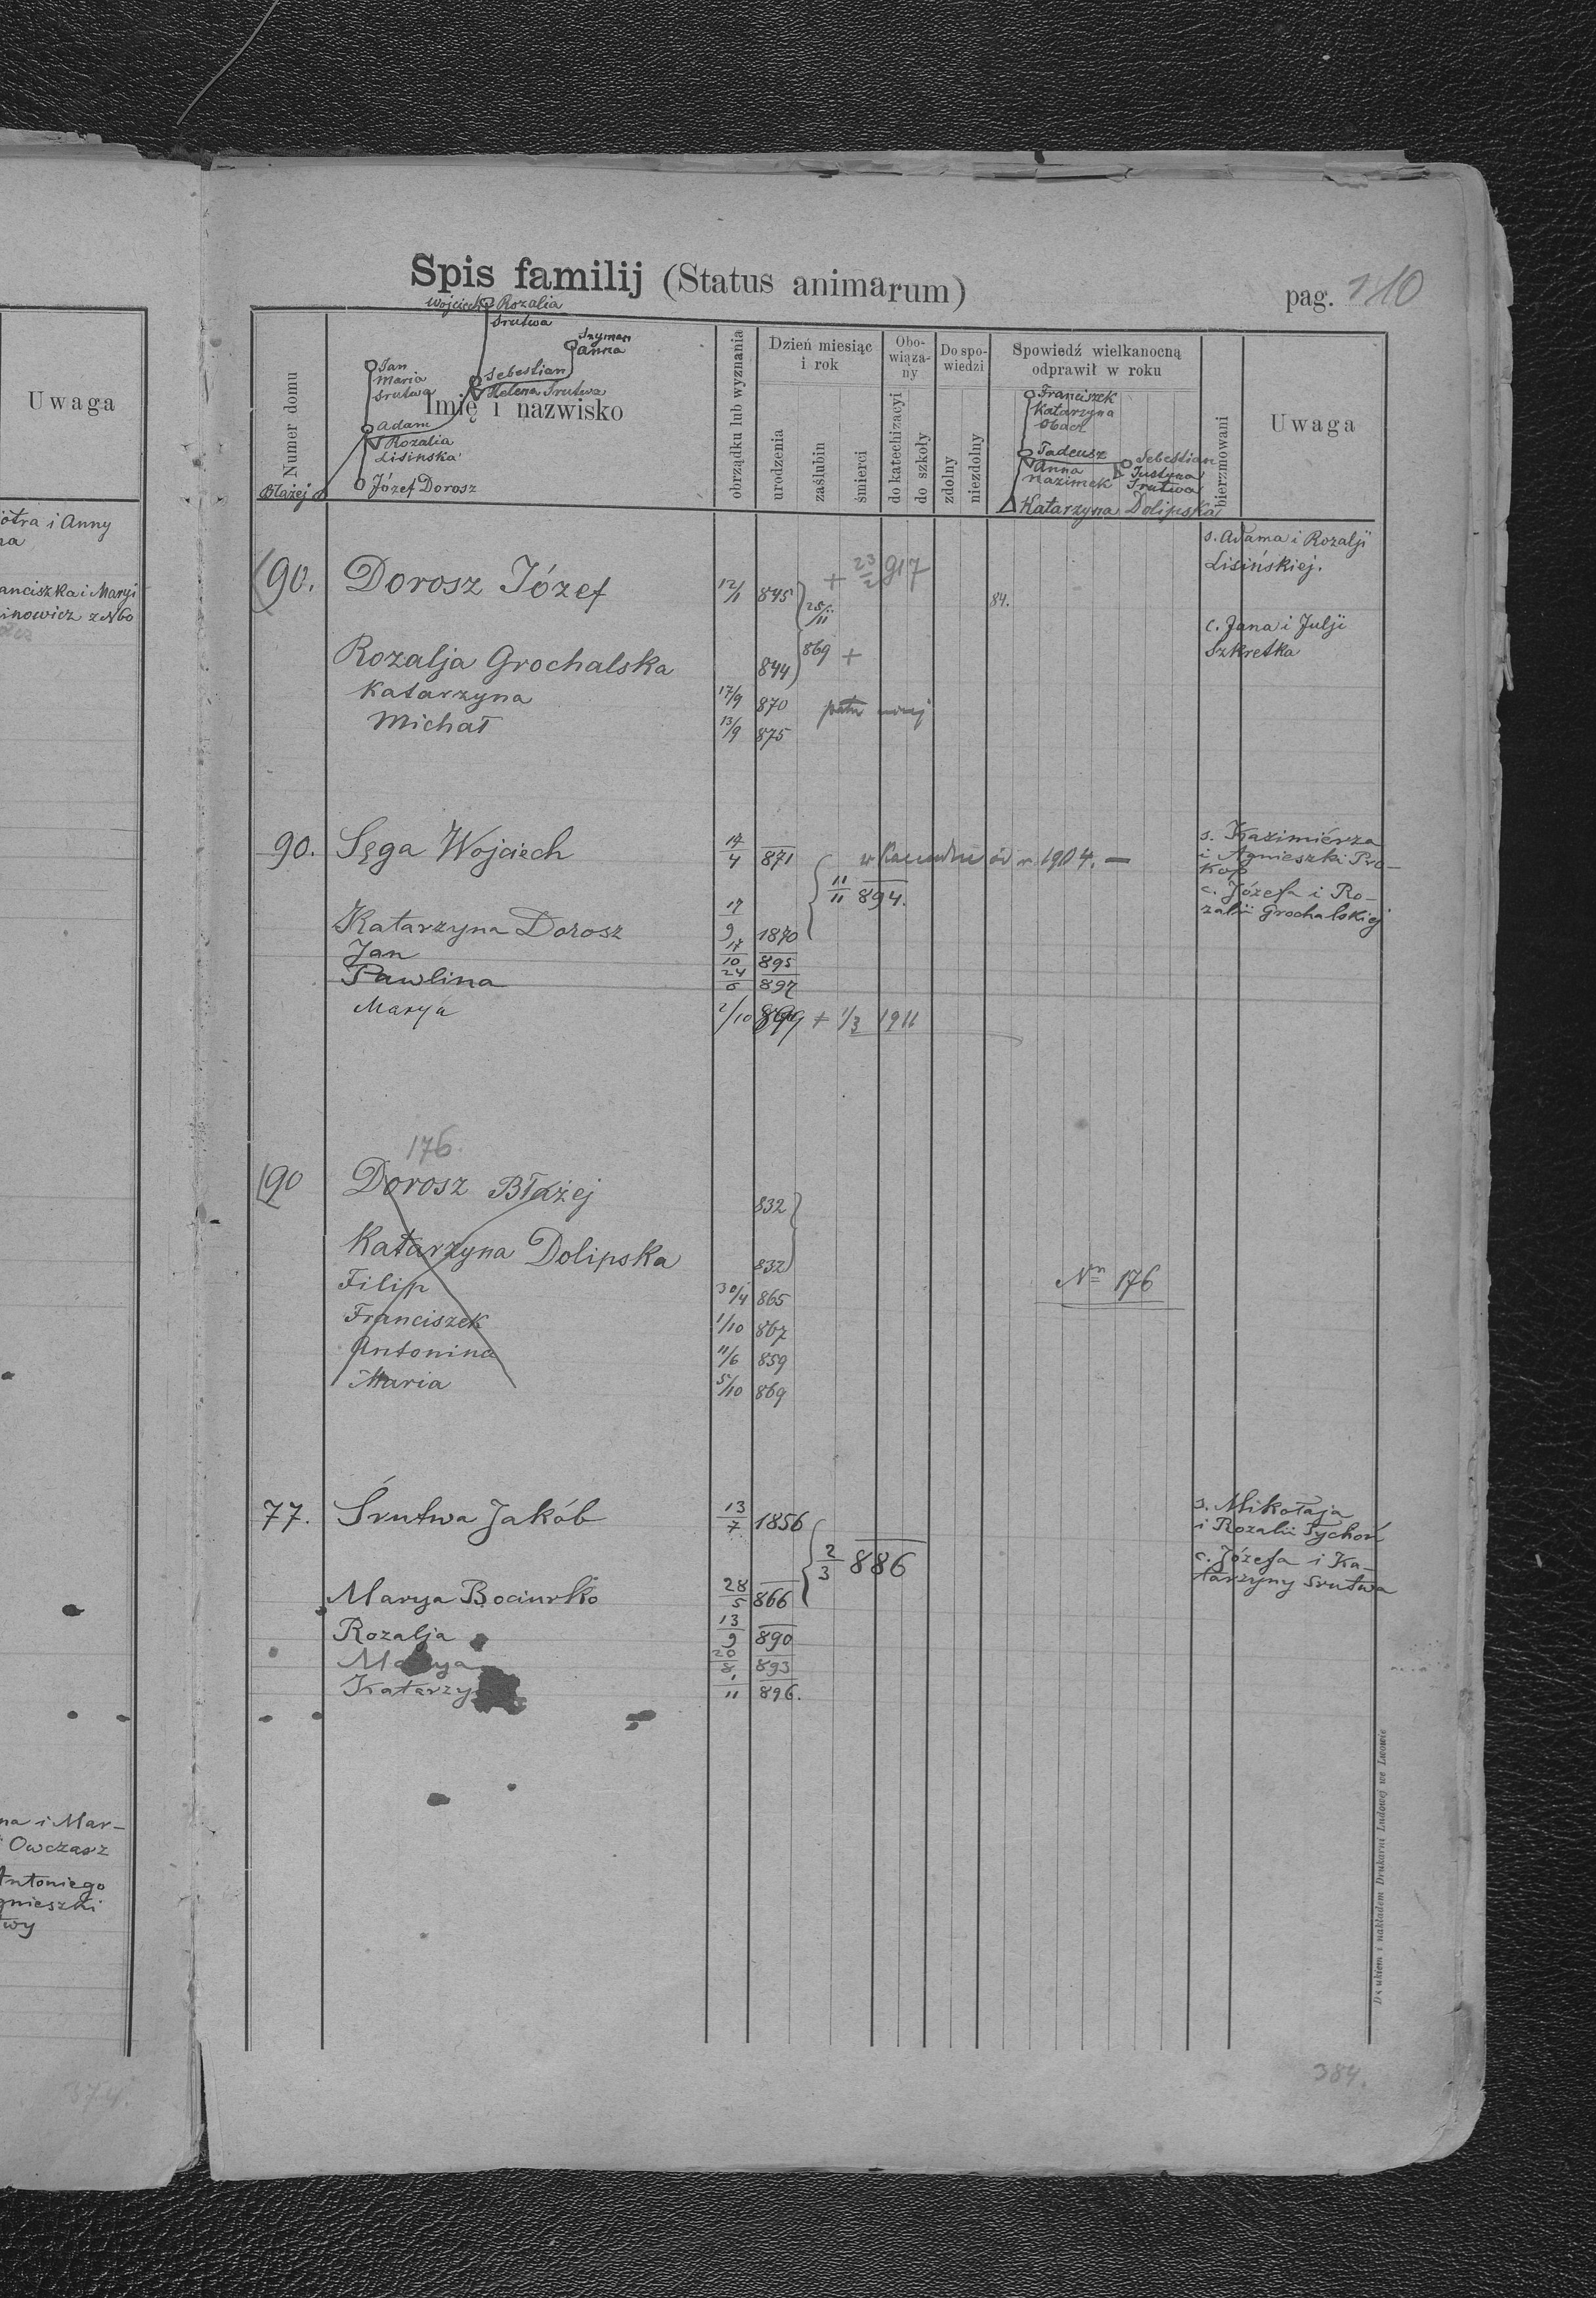 Uwaga
i Anny
Franciszka i Maryi
z N 60
na i Mar-
Owczarz
Antoniego
374.
Spis familij (Status animarum)
pag. 110
Wojciech Rozalia
Srutwa
Szyman
Anna
Jan
Maria
Srutwa
Sebestian
Helena Srutwa
Adam
Rozalia
Lisinska
Józef Dorosz
Błażej
Numer domu
Imię i nazwisko
obrządku lub wyznania
Dzień miesiąc i rok
urodzenia
zaślubin
śmierci
Obowiąza-ny
do katechizacyi
do szkoły
Do spo-wiedzi
zdolny
niezdolny
Spowiedź wielkanocną
odprawił w roku
Franciszek
Katarzyna
Obach
Tadeusz
Anna
Nazimek
Sebestian
Justyna
Srutwa
Katarzyna Dolipska
bierzmowani
Uwaga
90. Dorosz Józef 12/1 845 28/11 + 23/2 917 84. s. Adama i Rozalji
Lisińskiej.
Rozalja Grochalska 844 869 + c. Jana i Julji
Szkretka
Katarzyna 17/9 870
Michał 13/9 875
90. Sęga Wojciech 17/4 871 11/11 894. 1904. — s. Kazimiérza
i Agnieszki Pro-
kop
Katarzyna Dorosz 17/9 1870 c. Józefa i Ro-
zalii Grochalskiej
Jan 17/10 895
Pawlina 24/6 897
Marya 2/10 899 + 1/3 1911
176.
90 Dorosz Błażej 832
Katarzyna Dolipska 832
Filip 30/4 865 Nn 176
Franciszek 1/10 867
Antonina 11/6 859
Maria 5/10 869
77. Śrutwa Jakób 13/7 1856 2/3 886 s. Mikołaja
i Rozalii Tychoń
Marya Bociurko 28/5 866 c. Józefa i Ka-
tarzyny Srutwa
Rozalja 13/9 890
Marya 20/8 893
Katarzy 1/11 896.
Drukiem i nakładem Drukarni Ludowej we Lwowie
384.